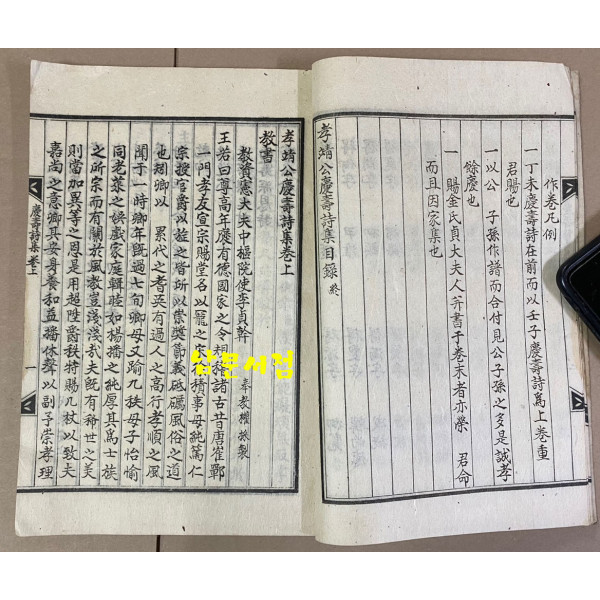 作卷凡例
一丁未慶壽詩在前而以壬子慶壽詩爲上卷重
君賜也
一以公 子孫作譜而合付見公子孫之多是誠孝
餘慶也
一 賜金氏貞大夫人幷書于卷末者亦榮 君命
而且因家集也
孝靖公慶壽詩集目録 終
孝靖公慶壽詩集卷上
教書
教資憲大夫中樞院使李貞幹 奉教權採製
王若曰尊高年慶有德國家之令 稽諸古昔唐崔鄲
門孝友宣宗賜堂名以寵之宋 積事母純篤仁
宗授官爵以旌之皆所以崇奬節義砥礪風俗之道
也卿以 累代之耆英有過人之高行孝順之風
聞于一時卿年旣過七旬卿母又踰九秩母子怡愉
同老萊之娛戱家庭輯睦如楊播之純厚其爲士族
之所宗而有關於風教豈淺淺哉夫旣有稀世之美
則當加異等之恩是用超陞爵秩特賜几杖以致夫
嘉尚之意卿其安身養和益播休聲以副予崇孝理
慶壽詩集 卷上
一
삼문서점